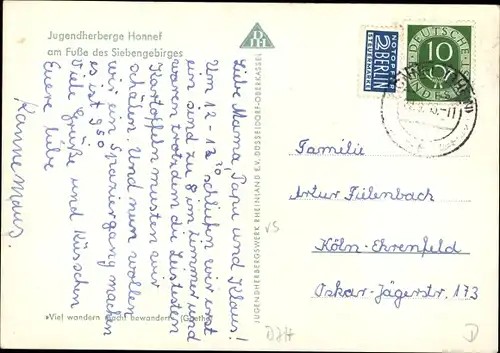 Jugendherberge Honnef
am Fuße des Siebengebirges
Liebe Mama, Papa und Klaus!
Um 12-12³⁰ schliefen wir erst
ein sind zu 8 im Zimmer und
waren trotzdem die Leisesten
Kartoffeln mussten wir
schälen. Und nun wollen
wir ein Spaziergang machen
es ist 9⁵⁰
Viele Grüße und Küsschen
Euere liebe
Hannemaus.
»Viel wandern macht bewandert.« (Goethe)
JUGENDHERBERGSWERK RHEINLAND E.V. DÜSSELDORF-OBERKASSEL
DJH
NOTOPFER
2 BERLIN
STEUERMARKE
DEUTSCHE
10
BUNDESPOST
Familie
Artur Fülenbach
Köln-Ehrenfeld
Oskar-Jägerstr. 173
DJH
D